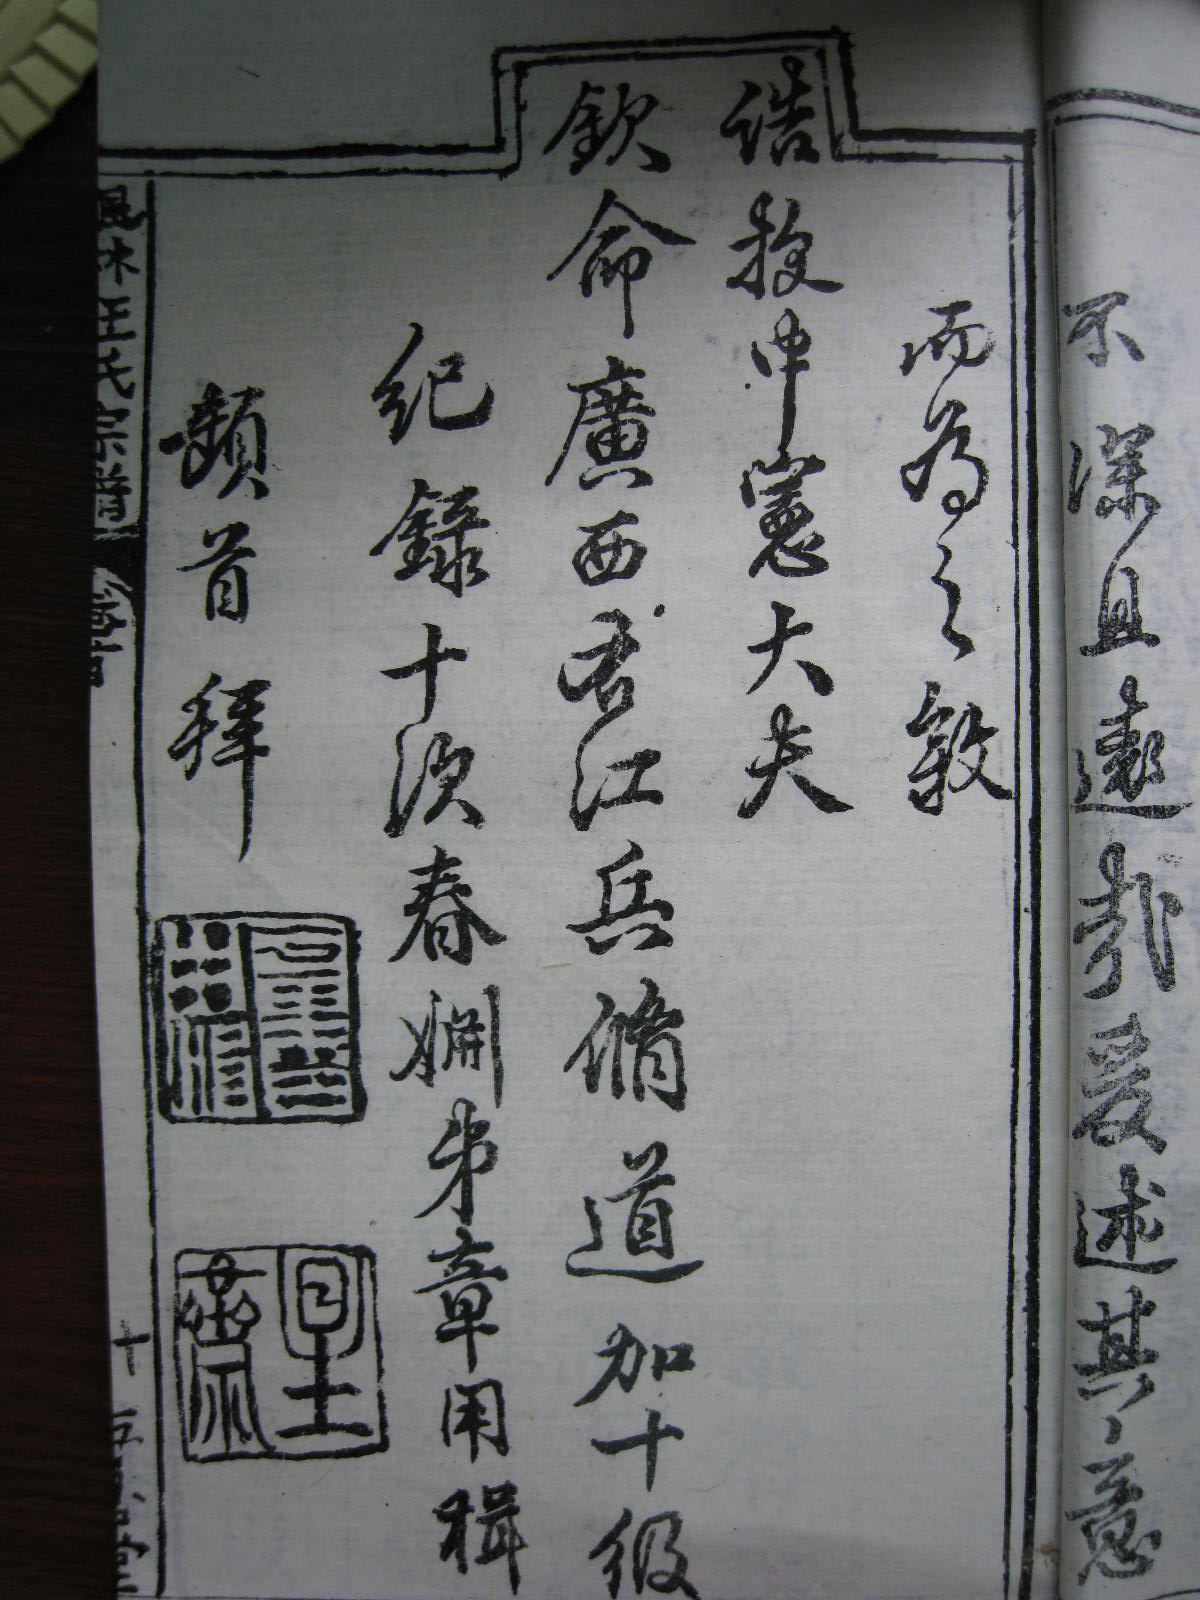 不深且遠哉爰述其意
而為之敘
誥授中憲大夫
欽命廣西右江兵備道加十級
紀錄十次春姻弟章用楫
頓首拜
王氏宗譜
卷首
十